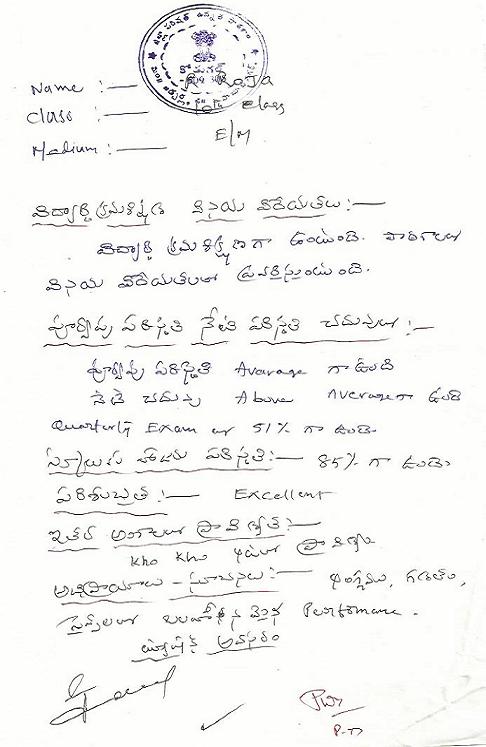 Name :— R. Raja
Class :— 10th Class
Medium :— E/M
విద్యార్థి క్రమశిక్షణ వినయ విధేయతలు :—
విద్యార్థి క్రమశిక్షణగా ఉంటుంది.
వినయ విధేయతలతో ప్రవర్తిస్తుంటుంది.
పూర్వపు పరిస్థితి నేటి పరిస్థితి చదువులో :—
పూర్వపు పరిస్థితి Avarage గా ఉంది
నేటి చదువు Above Average గా ఉంది
Quarterly Exam లో 51% గా ఉంది.
స్కూలుకు హాజరు పరిస్థితి :— 85% గా ఉంది
పరిశుభ్రత :— Excellent
ఇతర అంశాలలో ప్రావీణ్యత :—
Kho Kho ఆటలో ప్రావీణ్యం
అభిప్రాయాలు - సూచనలు :— ఆంగ్లము, గణితం,
సైన్స్‌లలో బలహీనమైన Perfomance.
ట్యూషన్ అవసరం